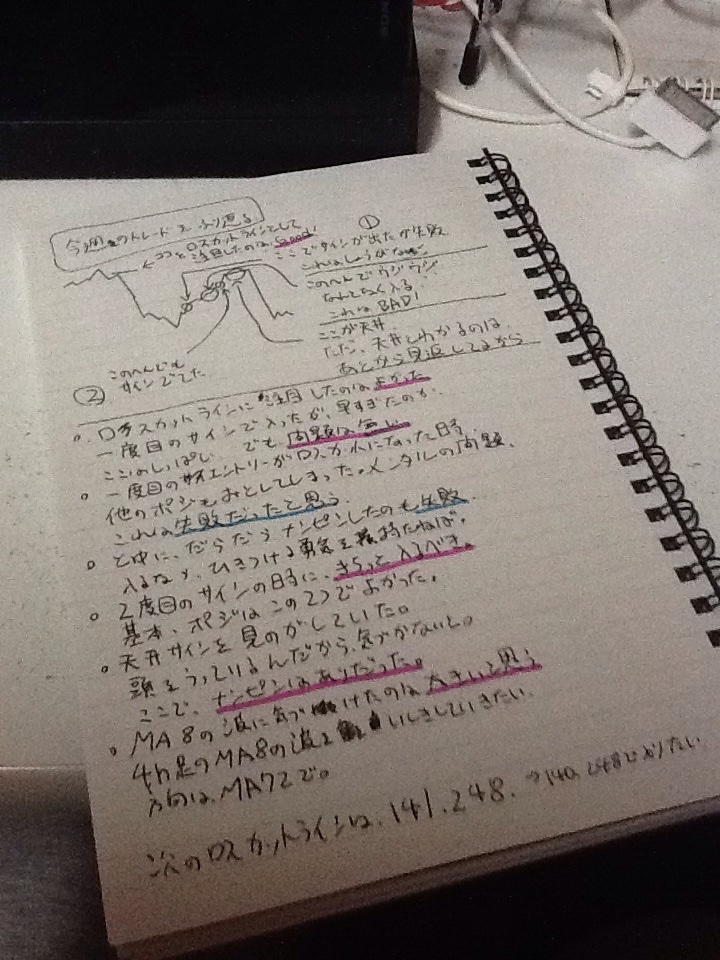 今週のトレードをふり返る
← ココをロスカットラインとして
注目したのは、Good!
①
ここでサインが出たが失敗
これはしょうがない。
このへんでウジウジ
なんとなく入る
これは BAD!
ここが天井
ただ、天井とわかるのは、
あとから見返してるから
このへんでも
サインでてた
②
ロスカットラインに注目したのはよかった
一度目のサインで入ったが、早すぎたのか、
ここのしっぱい でも問題は無し
一度目のエントリーがロスカットになった時、
他のポジもおとしてしまった。メンタルの問題、
これは失敗だったと思う
と中に、だらだらナンピンしたのも失敗
入るなら、ひきつける勇気を持たねば、
2度目のサインの時に、きちっと入るべき。
基本、ポジはこの2つでよかった。
天井サインを見のがしていた。
頭をうっているんだから、気づかないと。
ここで、ナンピンはありだった。
MA8の波に気づけたのは大きいと思う
4h足のMA8の波をいしきしていきたい。
方向は、MA72で。
次のロスカットラインは、141.248. →140.248でやりたい